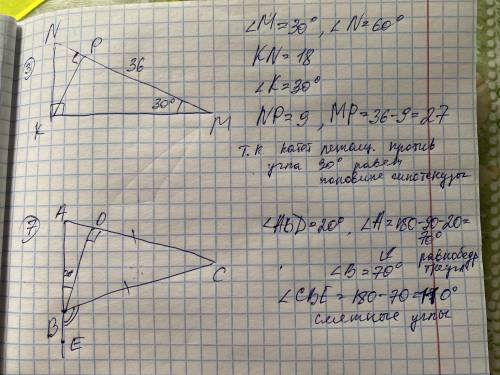 3
N
P
36
30°
K
M
∠M=30°, ∠N=60°
KN=18
∠K=30°
NP=9, MP=36-9=27
т.к. катет лежащ. против
угла 30° равен
половине гипотенузы
7
A
D
C
B
E
∠ABD=20°, ∠A=180-90-20=
70°
равнобедр
∠B=70° треуг.
∠CBE=180-70=110°
смежные углы